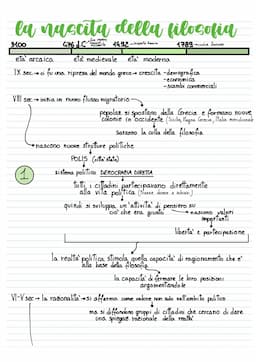 la nascita della filosofia
3100 476 d.C 1492 1789
età arcaica età medievale età moderna
IX sec → ci fu una ripresa del mondo greco → crescita - demografica
- economica
- scambi commerciali
VIII sec → inizia un nuovo flusso migratorio
popolaz. si spostano dalla Grecia e formano nuove
colonie in occidente (Sicilia, Magna Grecia, Italia meridionale)
saranno la culla della filosofia
→ nascono nuove strutture politiche
POLIS (città stato)
1
sistema politico DEMOCRAZIA DIRETTA
tutti i cittadini partecipavano direttamente
alla vita politica
quindi si sviluppa un'attività di pensiero su
ciò che era giusto → nascono valori
importanti
libertà e partecipazione
la realtà politica stimola quella capacità di ragionamento che è
alla base della filosofia
la capacità di formare le loro posizioni
argomentandole
VI-V sec → la razionalità → si afferma come valore non solo nell'ambito politico
ma si diffondono gruppi di cittadini che cercano di dare
una spiegaz. razionale della realtà